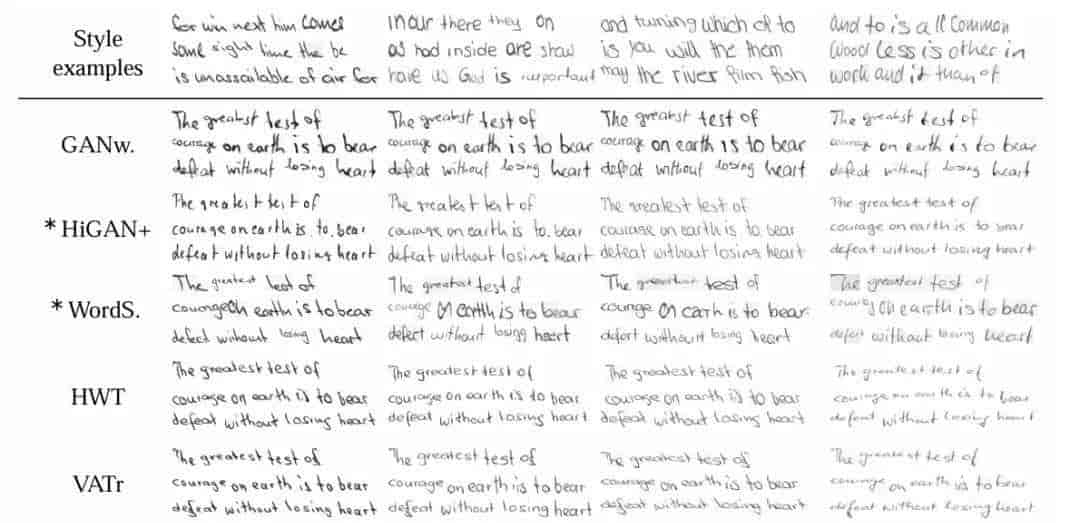 Style examples
for win next him comes
same right time the be
is unassailable of air for
in our there they on
as had inside are show
have us God is important
and turning which of to
is you will the them
may the river film fish
And to is a ll Common
Wood Less is other in
work and it than of
GANw.
The greatest test of
courage on earth is to bear
defeat without losing heart
The greatest test of
courage on earth is to bear
defeat without losing heart
The greatest test of
courage on earth is to bear
defeat without losing heart
The greatest test of
courage on earth is to bear
defeat without losing heart
* HiGAN+
The greatest test of
courage on earth is to. bear
defeat without losing heart
The greatest test of
courage on earth is to. bear
defeat without losing heart
The greatest test of
courage on earth is to bear
defeat without losing heart
The greatest test of
courage on earth is to bear
defeat without losing heart
* WordS.
The greatest test of
earth is to bear
losing heart
The greatest test of
is to bear
without heart
The test of
is to bear.
losing heart
The greatest test of
on earth is to bear
without losing heart
HWT
The greatest test of
courage on earth is to bear
defeat without losing heart
The greatest test of
courage on earth is to bear
defeat without losing heart
The greatest test of
courage on earth is to bear
defeat without losing heart
The greatest test of
courage on earth is to bear
defeat without losing heart
VATr
The greatest test of
courage on earth is to bear
defeat without losing heart
The greatest test of
courage on earth is to bear
defeat without losing heart
The greatest test of
courage on earth is to bear
defeat without losing heart
The greatest test of
courage on earth is to bear
defeat without losing heart